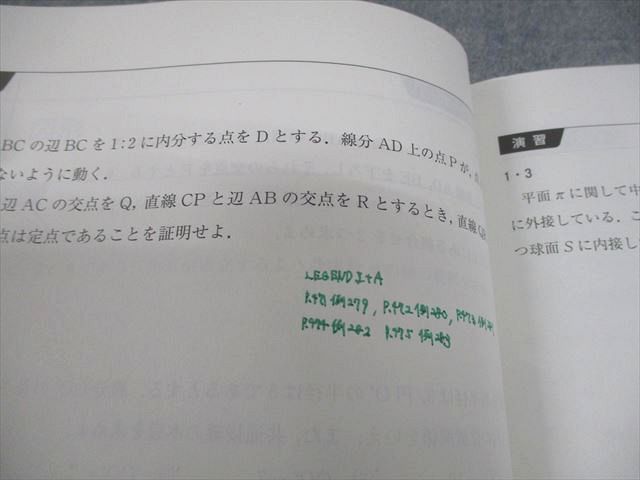 BCの辺BCを1:2に内分する点をDとする．線分AD上の点Pが，
ないように動く．
辺ACの交点をQ，直線CPと辺ABの交点をRとするとき，直線QR
点は定点であることを証明せよ．
LEGEND I+A
P.471 例279, P.472 例280, P.473 例
P.474 例282 P.475 例283
演習
1・3
平面πに関して中
に外接している．こ
つ球面Sに内接し